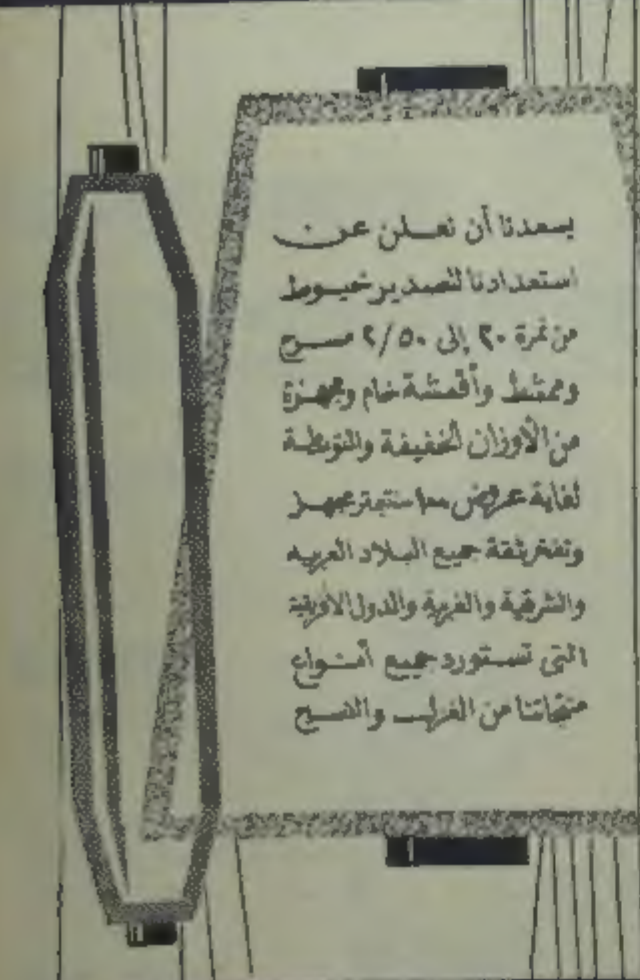 يسعدنا أن نعلن عن
استعدادنا لتصدير خيوط
من نمرة ٢٠ إلى ٢/٥٠ مسرح
وممشط وأقمشة خام ومجهزة
من الأوزان الخفيفة والمتوسطة
لغاية عرض سنتيمتر مجهز
وتفخر بثقة جميع البلاد العربيه
والشرقية والغربية والدول الأفريقية
التى تستورد جميع أنواع
منتجاتنا من الغزل والنسيج